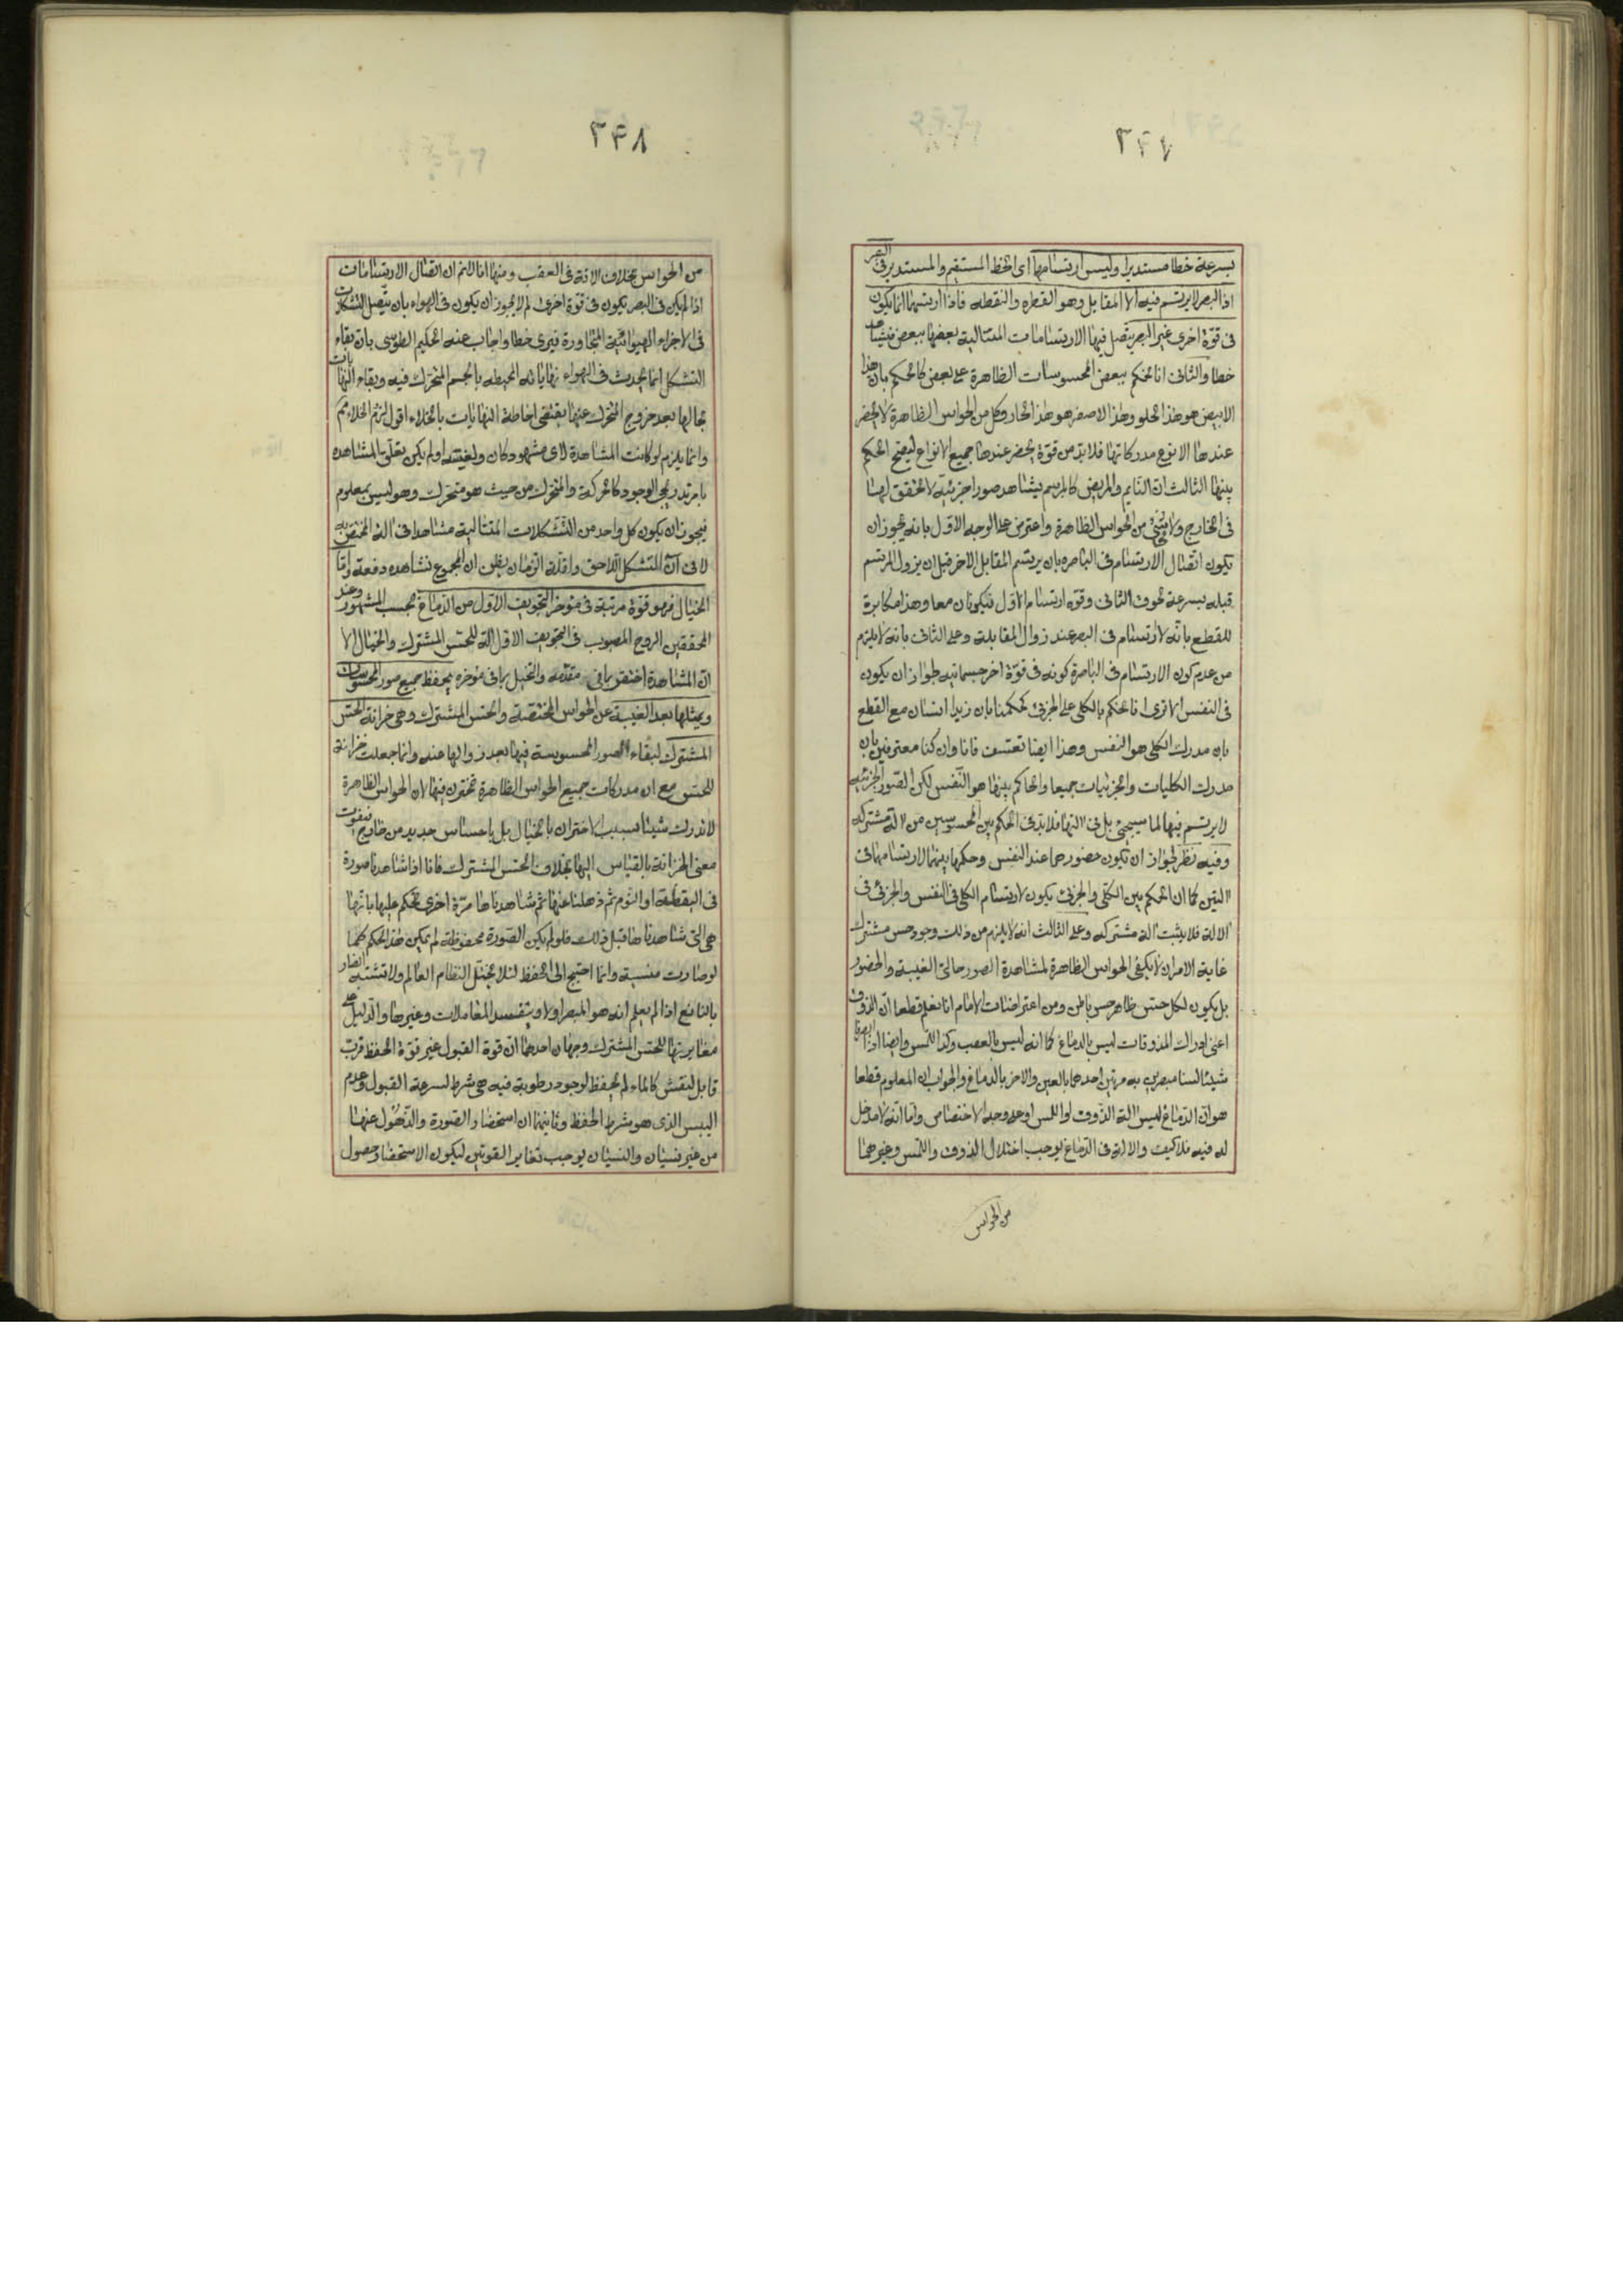 ٣٤٧
بسرعة خطا مستديرا وليس ارتسامها اى الخط المستقيم والمستدير فى البصر
اذ البصر لا يرتسم فيه الا المقابل وهو القطره والنقطه فاذا ارتسامهما انما يكون
فى قوّة اخرى غير البصر يتصل فيها الارتسامات المتتالية بعضها ببعض فيشاهد
خطا والثانى انا نحكم ببعض المحسوسات الظاهرة على بعض كما نحكم بان هذا
الابيض هو هذا الحلو وهذا الاصفر هو هذا الحار وكل من الحواس الظاهرة لا يحضر
عندها الا نوع مدركاتها فلا بدّ من قوّة يحضر عندها جميع الانواع ليصح الحكم
بينها الثالث انّ النايم والمريض كالمبرسم يشاهد صورا جزئية لا تحقق لها
فى الخارج ولا فى شئ من الحواس الظاهرة واعترض على الوجه الاوّل بانه يجوز ان
يكون اتصال الارتسام فى الباصره بان يرتسم المقابل الاخر قبل ان يزول المرتسم
قبله بسرعة لحوق الثانى وقوّه ارتسام الاوّل فيكونان معا وهذا مكابرة
للقطع بانّه لا ارتسام فى البصر عند زوال المقابلة وعلى الثانى بانه لا يلزم
من عدم كون الارتسام فى الباصرة كونه فى قوّة اخر جسمانيه لجواز ان يكون
فى النفس الا ترى انا نحكم بالكلى على الجزئى كحكمنا بان زيدا انسان مع القطع
بان مدرك الكلى هو النفس وهذا ايضا تعسّف فانا وان كنا معترفين بان
مدرك الكليات والجزئيات جميعا والحاكم بينها هو النّفس لكن الصّور الجزئيه
لا يرتسم فيها لما سيجئ بل فى التها فلا بدّ فى الحكم بين المحسوسين من الة مشتركه
وفيه نظر لجواز ان يكون حضورهما عند النفس وحكمها بينهما لارتسامهما فى
التين كما ان الحكم بين الكلّى والجزئى يكون لارتسام الكلى فى النفس والجزئى فى
الالة فلا يثبت الة مشتركه وعلى الثالث انه لا يلزم من ذلك وجود حس مشترك
غاية الامر ان لا يكفى الحواس الظاهرة لمشاهدة الصور حالتى الغيبة والحضور
بل يكون لكل حسّ ظاهر حس باطن ومن اعتراضات الامام انا نعلم قطعا انّ الذوق
اعنى ادراك المذوقات ليس بالدماغ كما انه ليس بالعصب وكذا اللمس وايضا اذا ابصرنا
شيئا لسنا مبصرين به مرتين احدهما بالعين والاخر بالدماغ والجواب ان المعلوم قطعا
هو ان الدماغ ليس الة الذّوق او اللمس اولا وعلى وجه الاختصاص وامّا انّه لا مدخل
له فيه فلا كيف والافة فى الدّماغ يوجب اختلال الذوق واللمس وغيرهما
من الحواس
٣٤٨
من الحواس بخلاف الافة فى العقب ومنها انا لا نم ان اتصال الارتسامات
اذا لم يكن فى البصر يكون فى قوّة اخرى لم لا يجوز ان يكون فى الهواء بان يتّصل التشكلات
فى الاجزاء الهوائيّة المتجاورة فيرى خطا واجاب عنه الحكيم الطوسى بان بقاء
التشكل انما يحدث فى الهواء نهاياته المحيطه بالجسم المتحرّك فيه وبقاء النهايات
بحالها بعد خروج المتحرّك عنها يقتضى احاطة النهايات بالخلاء اقول لزوم الخلاء مم
وانما يلزم لو كانت المشاهدة لاى مشهود كان ولم يكن تعلّق المشاهده
بامر تدريجى الوجود كالحركة والمتحرّك من حيث هو متحرّك وهو ليس بمعلوم
فيجوز ان يكون كل واحد من التشكلات المتتالية مشاهدا فى انه المختص به
لا فى انّ التشكل اللاحق ولقلّة الزمان يظن ان المجموع نشاهده دفعة وامّا
الخيال فهو قوّة مرتبة فى موخر التجويف الاوّل من الدّماغ بحسب المشهور وعند
المحققين الروح المصبوب فى التجويف الاوّل الة للحسّ المشترك والخيال الا
انّ المشاهدة اختصّ بما فى مقدّمه والتخيل بما فى مؤخره يحفظ جميع صور المحسوسات
ويمثلها بعد الغيبة عن الحواس المختصّة والحسّ المشترك وهى خزانة الحسّ
المشترك لبقاء الصور المحسوسة فيها بعد زوالها عنه وانما جعلت خزانة
للحسّ مع ان مدركات جميع الحواس الظاهرة تختزن فيها لان الحواس الظاهرة
لا تدرك شيئا بسبب الاختزان بالخيال بل باحساس جديد من خارج فيفوت
معنى الخزانة بالقياس اليها بخلاف الحسّ المشترك فانا اذا شاهدنا صورة
فى اليقظة او النّوم ثم ذهلنا عنها ثم شاهدناها مرّة اخرى نحكم عليها بانّها
هى التى شاهدناها قبل ذلك فلو لم يكن الصّورة محفوظة لم يمكن هذا الحكم كما
لو صارت منسية وانما احتيج الى الحفظ لئلا يختلّ النظام العالم ولا تشتبه الضار
بالنافع اذا لم يعلم انه هو المبصر اولا ويتفسد المعاملات وغيرها والدّليل على
مغايرتها للحسّ المشترك وجهان احدهما ان قوة القبول غير قوّة الحفظ فربّ
قابل لنقش كالماء لم يحفظ لوجود رطوبة فيه هى شرط لسرعة القبول وعدم
اليبس الذى هو شرط الحفظ وثانيهما ان استحضار الصّورة والذّهول عنها
من غير نسيان والنسيان يوجب تغاير القوتين ليكون الاستحضار حصول